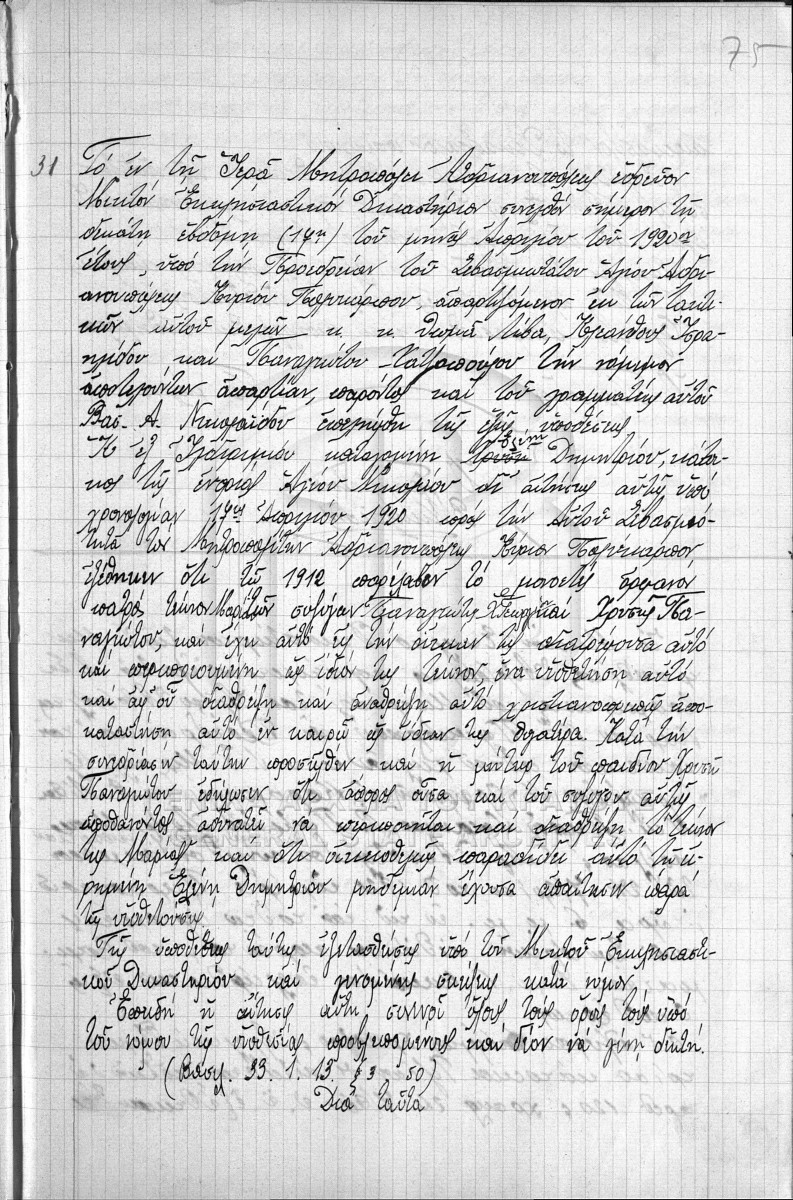 75
31 Τό ἐν τῇ Ἱερᾷ Μητροπόλει Ἀδριανουπόλεως ἑδρεῦον
Μικτόν Ἐκκλησιαστικόν Δικαστήριον συνελθόν σήμερον τῇ
δεκάτῃ ἑβδόμῃ (17ῃ) τοῦ μηνός Ἀπριλίου τοῦ 1920οῦ
ἔτους, ὑπό τήν Προεδρείαν τοῦ Σεβασμιωτάτου Ἁγίου Ἀδρι-
ανουπόλεως Κυρίου Πολυκάρπου, ἀπαρτιζόμενον ἐκ τῶν τακτι-
κῶν αὐτοῦ μελῶν κ. κ. Θωμᾶ Λίβα,
καί Παναγιώτου Χατζοπούλου τήν νόμιμον
ἀποτελούντων ἀπαρτίαν, παρόντος καί τοῦ γραμματέως αὐτοῦ
Βας. Α. Νικολαΐδου ἐπελήφθη τῆς ἑξῆς ὑποθέσεως
Ἡ ἐξ καταγομένη Ἑλένη Δημητρίου, κάτοι-
κος τῆς ἐνορίας Ἁγίου Νικολάου δι' αἰτήσεως αὐτῆς ὑπό
χρονολογίαν 17ην Ἀπριλίου 1920 πρός τήν Αὐτοῦ Σεβασμιό-
τητα τόν Μητροπολίτην Ἀδριανουπόλεως Κύριον Πολύκαρπον
ἐξέθηκεν ὅτι τῷ 1912 παρέλαβεν τό μονοετές ὀρφανόν
πατρός τέκνον Μαρίαν τῶν συζύγων Παναγιώτου Γεωργίου καί Χρυσῆς Πα-
ναγιώτου, καί ἔχει αὐτό εἰς τήν οἰκίαν της διατρέφουσα αὐτό
καί περιποιουμένη ὡς ἴδιόν της τέκνον, ἵνα υἱοθετήσῃ αὐτό
καί ἀφ' οὗ διαθρέψῃ καί ἀναθρέψῃ αὐτό χριστιανοπρεπῶς ἀπο-
καταστήσῃ αὐτό ἐν καιρῷ ὡς ἰδίαν της θυγατέρα. Κατά τήν
συνεδρίασιν ταύτην προσῆλθεν καί ἡ μήτηρ τοῦ παιδίου Χρυσῆ
Παναγιώτου ἐδήλωσεν ὅτι ἄπορος οὖσα καί τοῦ συζύγου αὐτῆς
ἀποθανόντος ἀδυνατεῖ νά περιποιηθῇ καί διαθρέψῃ τό τέκνον
της Μαρίαν καί ὅτι οἰκειοθελῶς παραδίδει αὐτό τῇ εἰ-
ρημένῃ Ἑλένῃ Δημητρίου μηδεμίαν ἔχουσα ἀπαίτησιν παρά
τῆς υἱοθετούσης
Τῆς ὑποθέσεως ταύτης ἐξετασθείσης ὑπό τοῦ Μικτοῦ Ἐκκλησιαστι-
κοῦ Δικαστηρίου καί γενομένης σκέψεως κατά νόμον.
Ἐπειδή ἡ αἴτησις αὕτη συνενοῖ ὅλους τούς ὅρους τούς ὑπό
τοῦ νόμου τῆς υἱοθεσίας προβλεπομένους καί δέον νά γίνῃ δεκτή.
(Βασιλ. 33. 1. 13. §3 50)
Διά ταῦτα